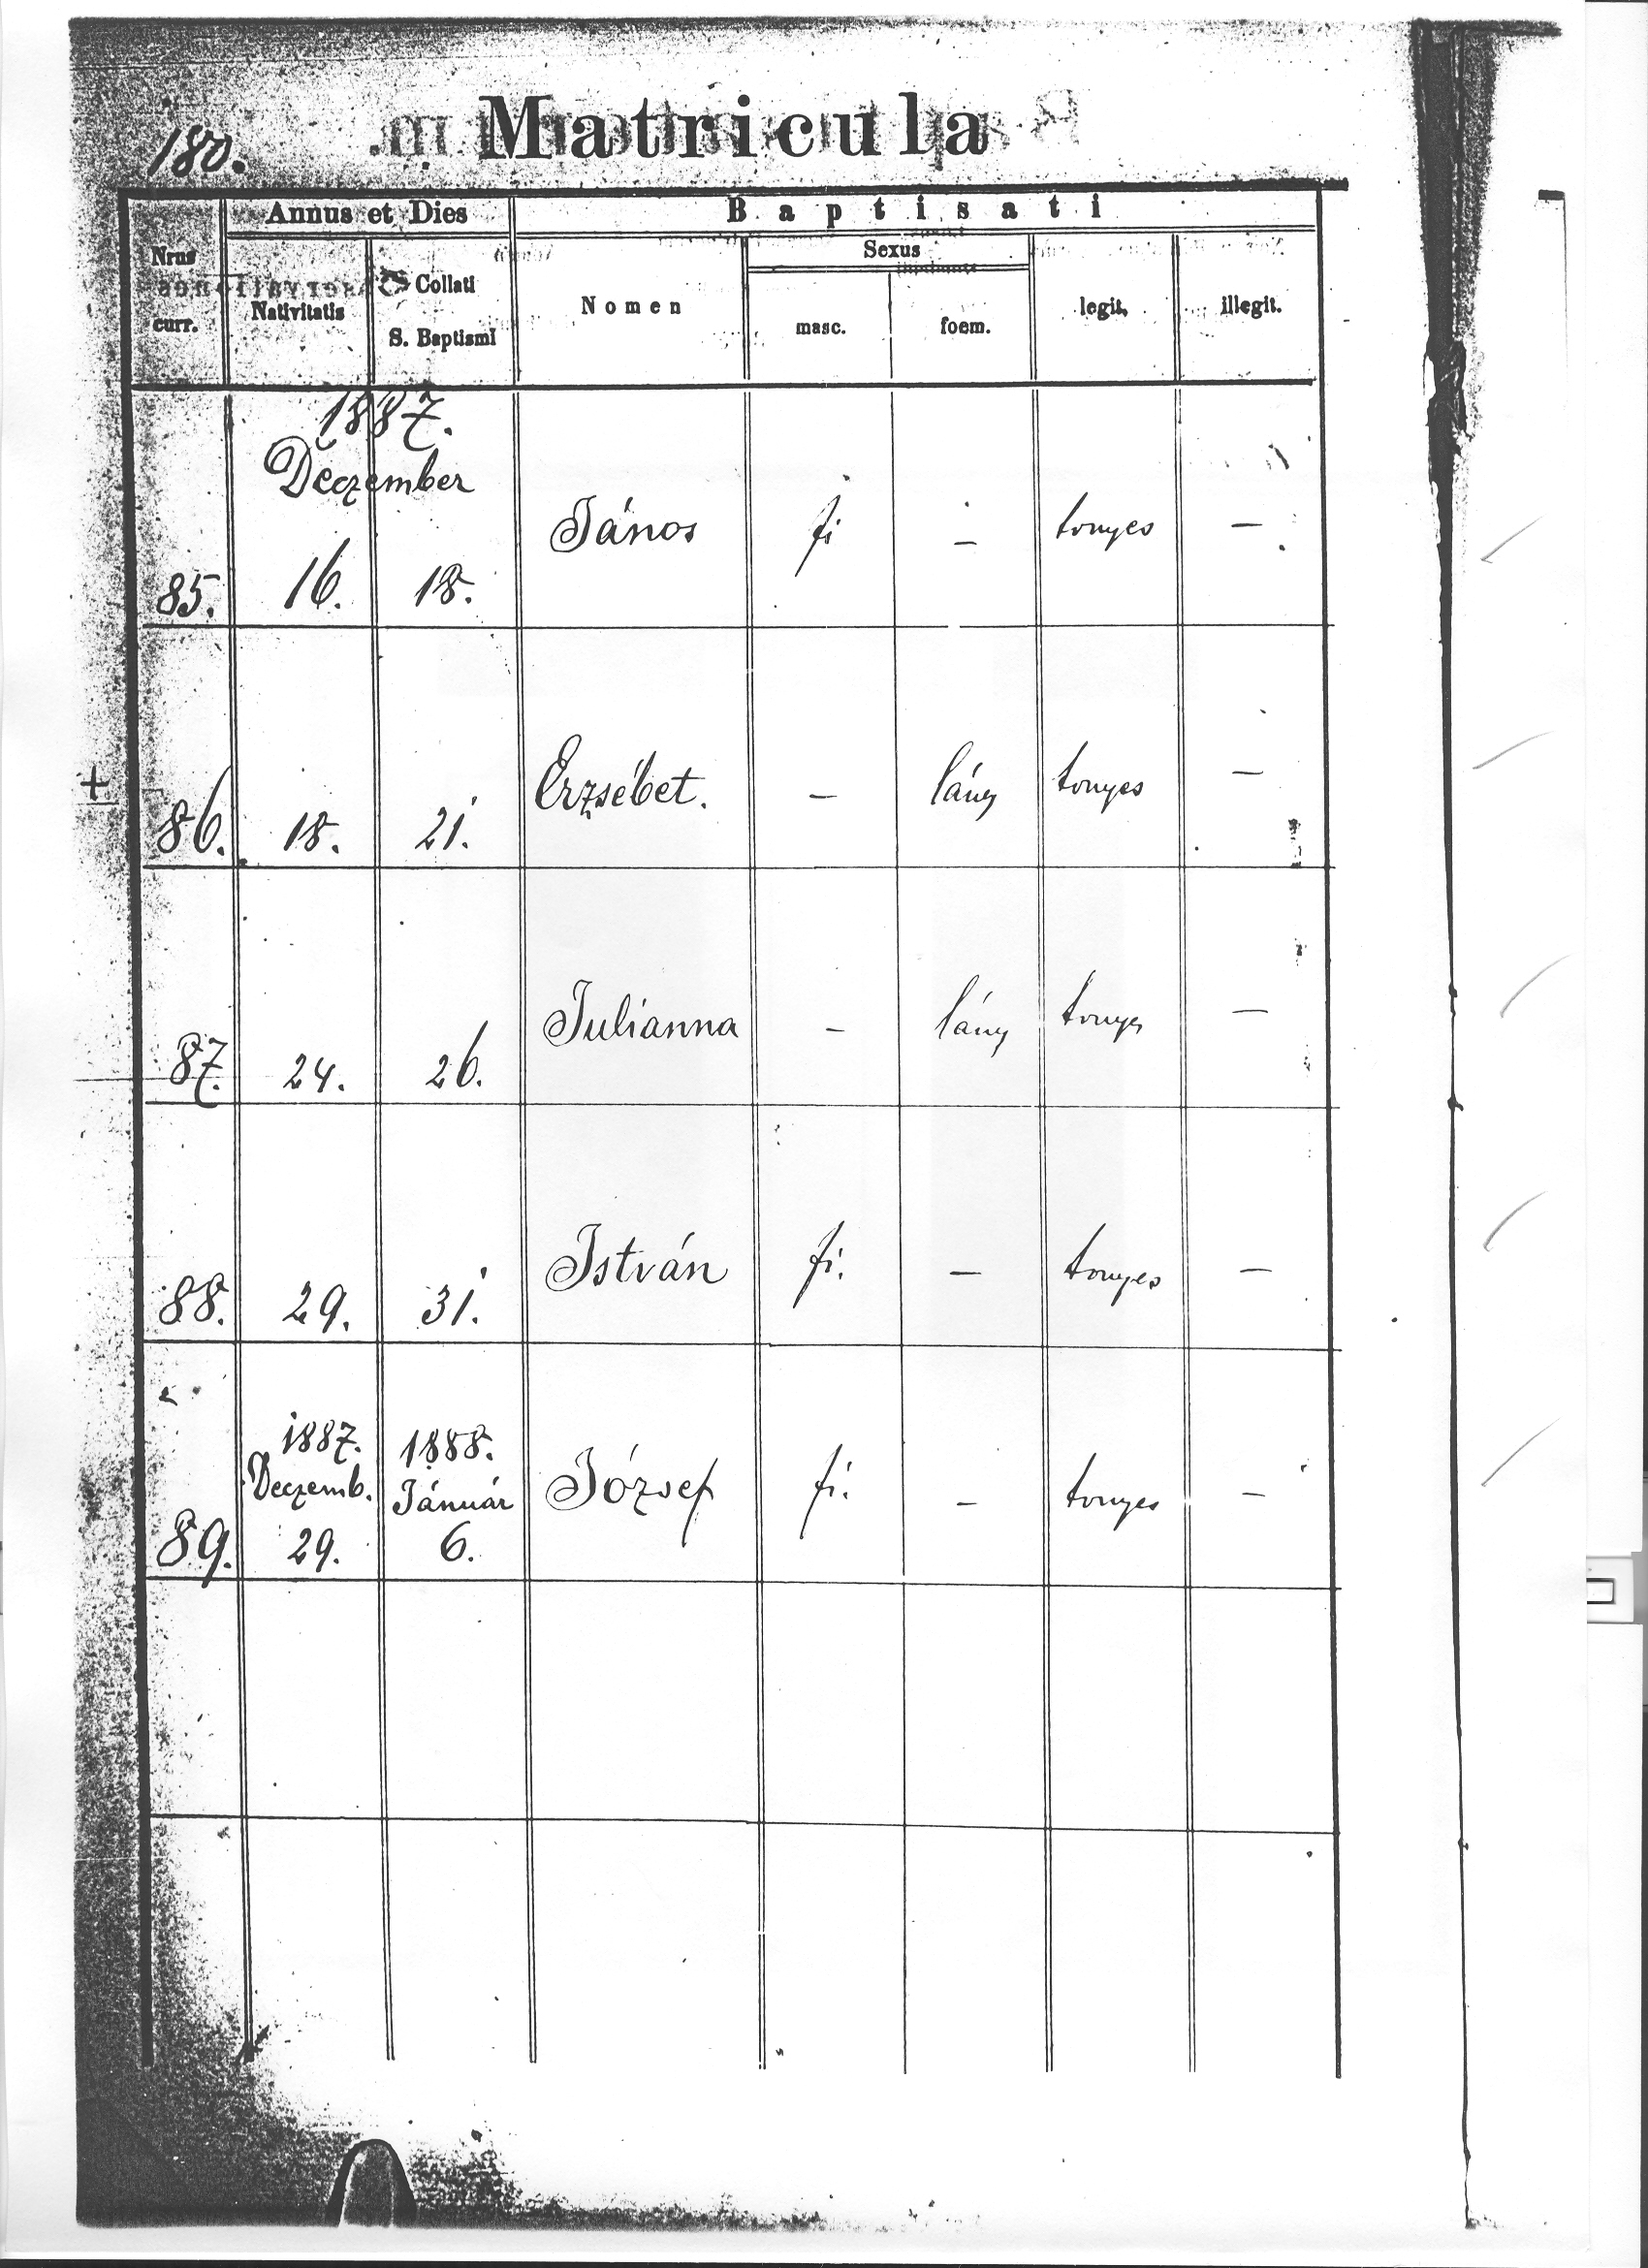 180.
Matricula
Annus et Dies
Baptisati
Nrus
curr.
Nativitatis
Collati
S. Baptismi
Nomen
Sexus
masc.
foem.
legit.
illegit.
1887.
Deczember
85. 16. 18. János fi – tvnyes –
+
86. 18. 21. Erzsébet. – lány tvnyes –
87. 24. 26. Julianna – lány tvnyes –
88. 29. 31. István fi. – tvnyes –
1887. 1888.
Deczemb. Január
89. 29. 6. József fi. – tvnyes –